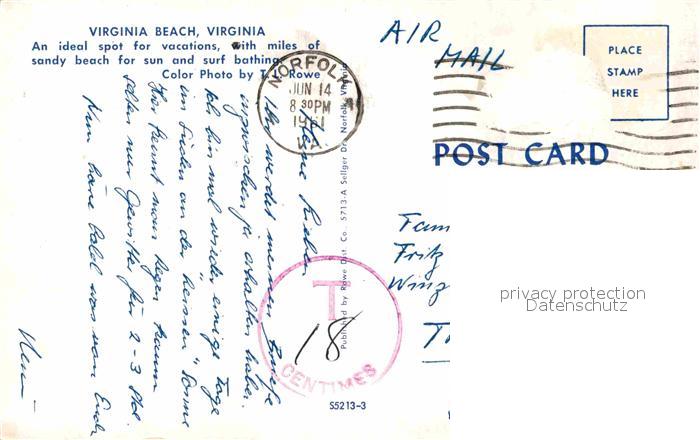 VIRGINIA BEACH, VIRGINIA
An ideal spot for vacations, with miles of
sandy beach for sun and surf bathing.
Color Photo by T. L. Rowe
NORFOLK
JUN 14
8 30 PM
1961
VA.
AIR
MAIL
PLACE
STAMP
HERE
POST CARD
Meine Lieben
Ihr werdet meinen Briefe
inzwischen ja erhalten haben.
Ich bin mal wieder einige Tage
im Süden an der heissen "Sonne"
Hier kennt man Regen kaum
selten nur Gewitter für 2-3 Std.
Nun höre bald was von Euch
Published by Rowe Dist. Co. 5713-A Sellger Dr., Norfolk, Virginia
T
18
CENTIMES
S5213-3
Fam
Fritz
Winz
privacy protection
Datenschutz